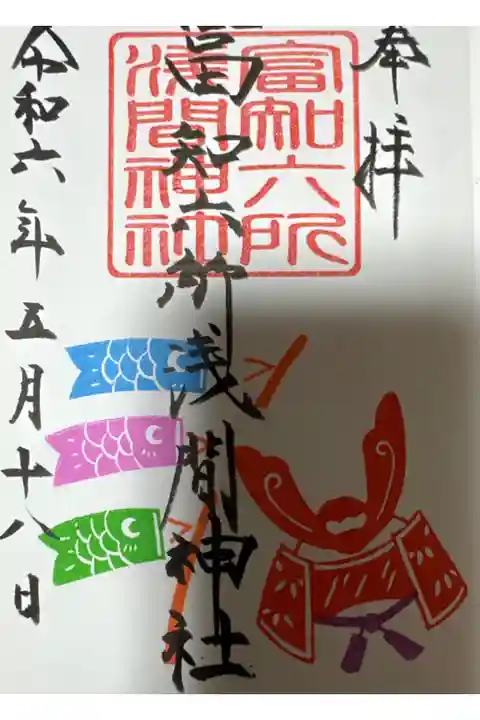 奉拝
富知六所
浅間神社
富知六所浅間神社
令和六年五月十八日